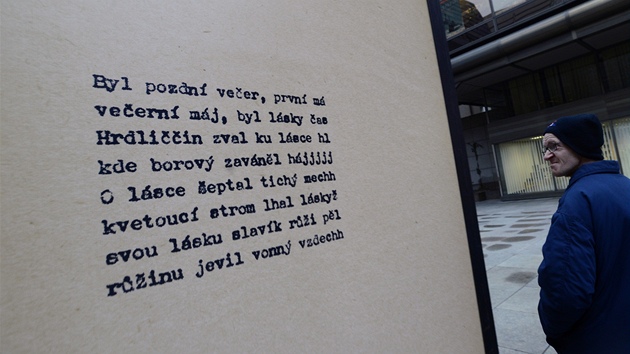 Byl pozdní večer, první má
večerní máj, byl lásky čas
Hrdliččin zval ku lásce hl
kde borový zaváněl hájjjjj
O lásce šeptal tichý mechh
kvetoucí strom lhal láskyž
svou lásku slavík růži pěl
růžinu jevil vonný vzdechh